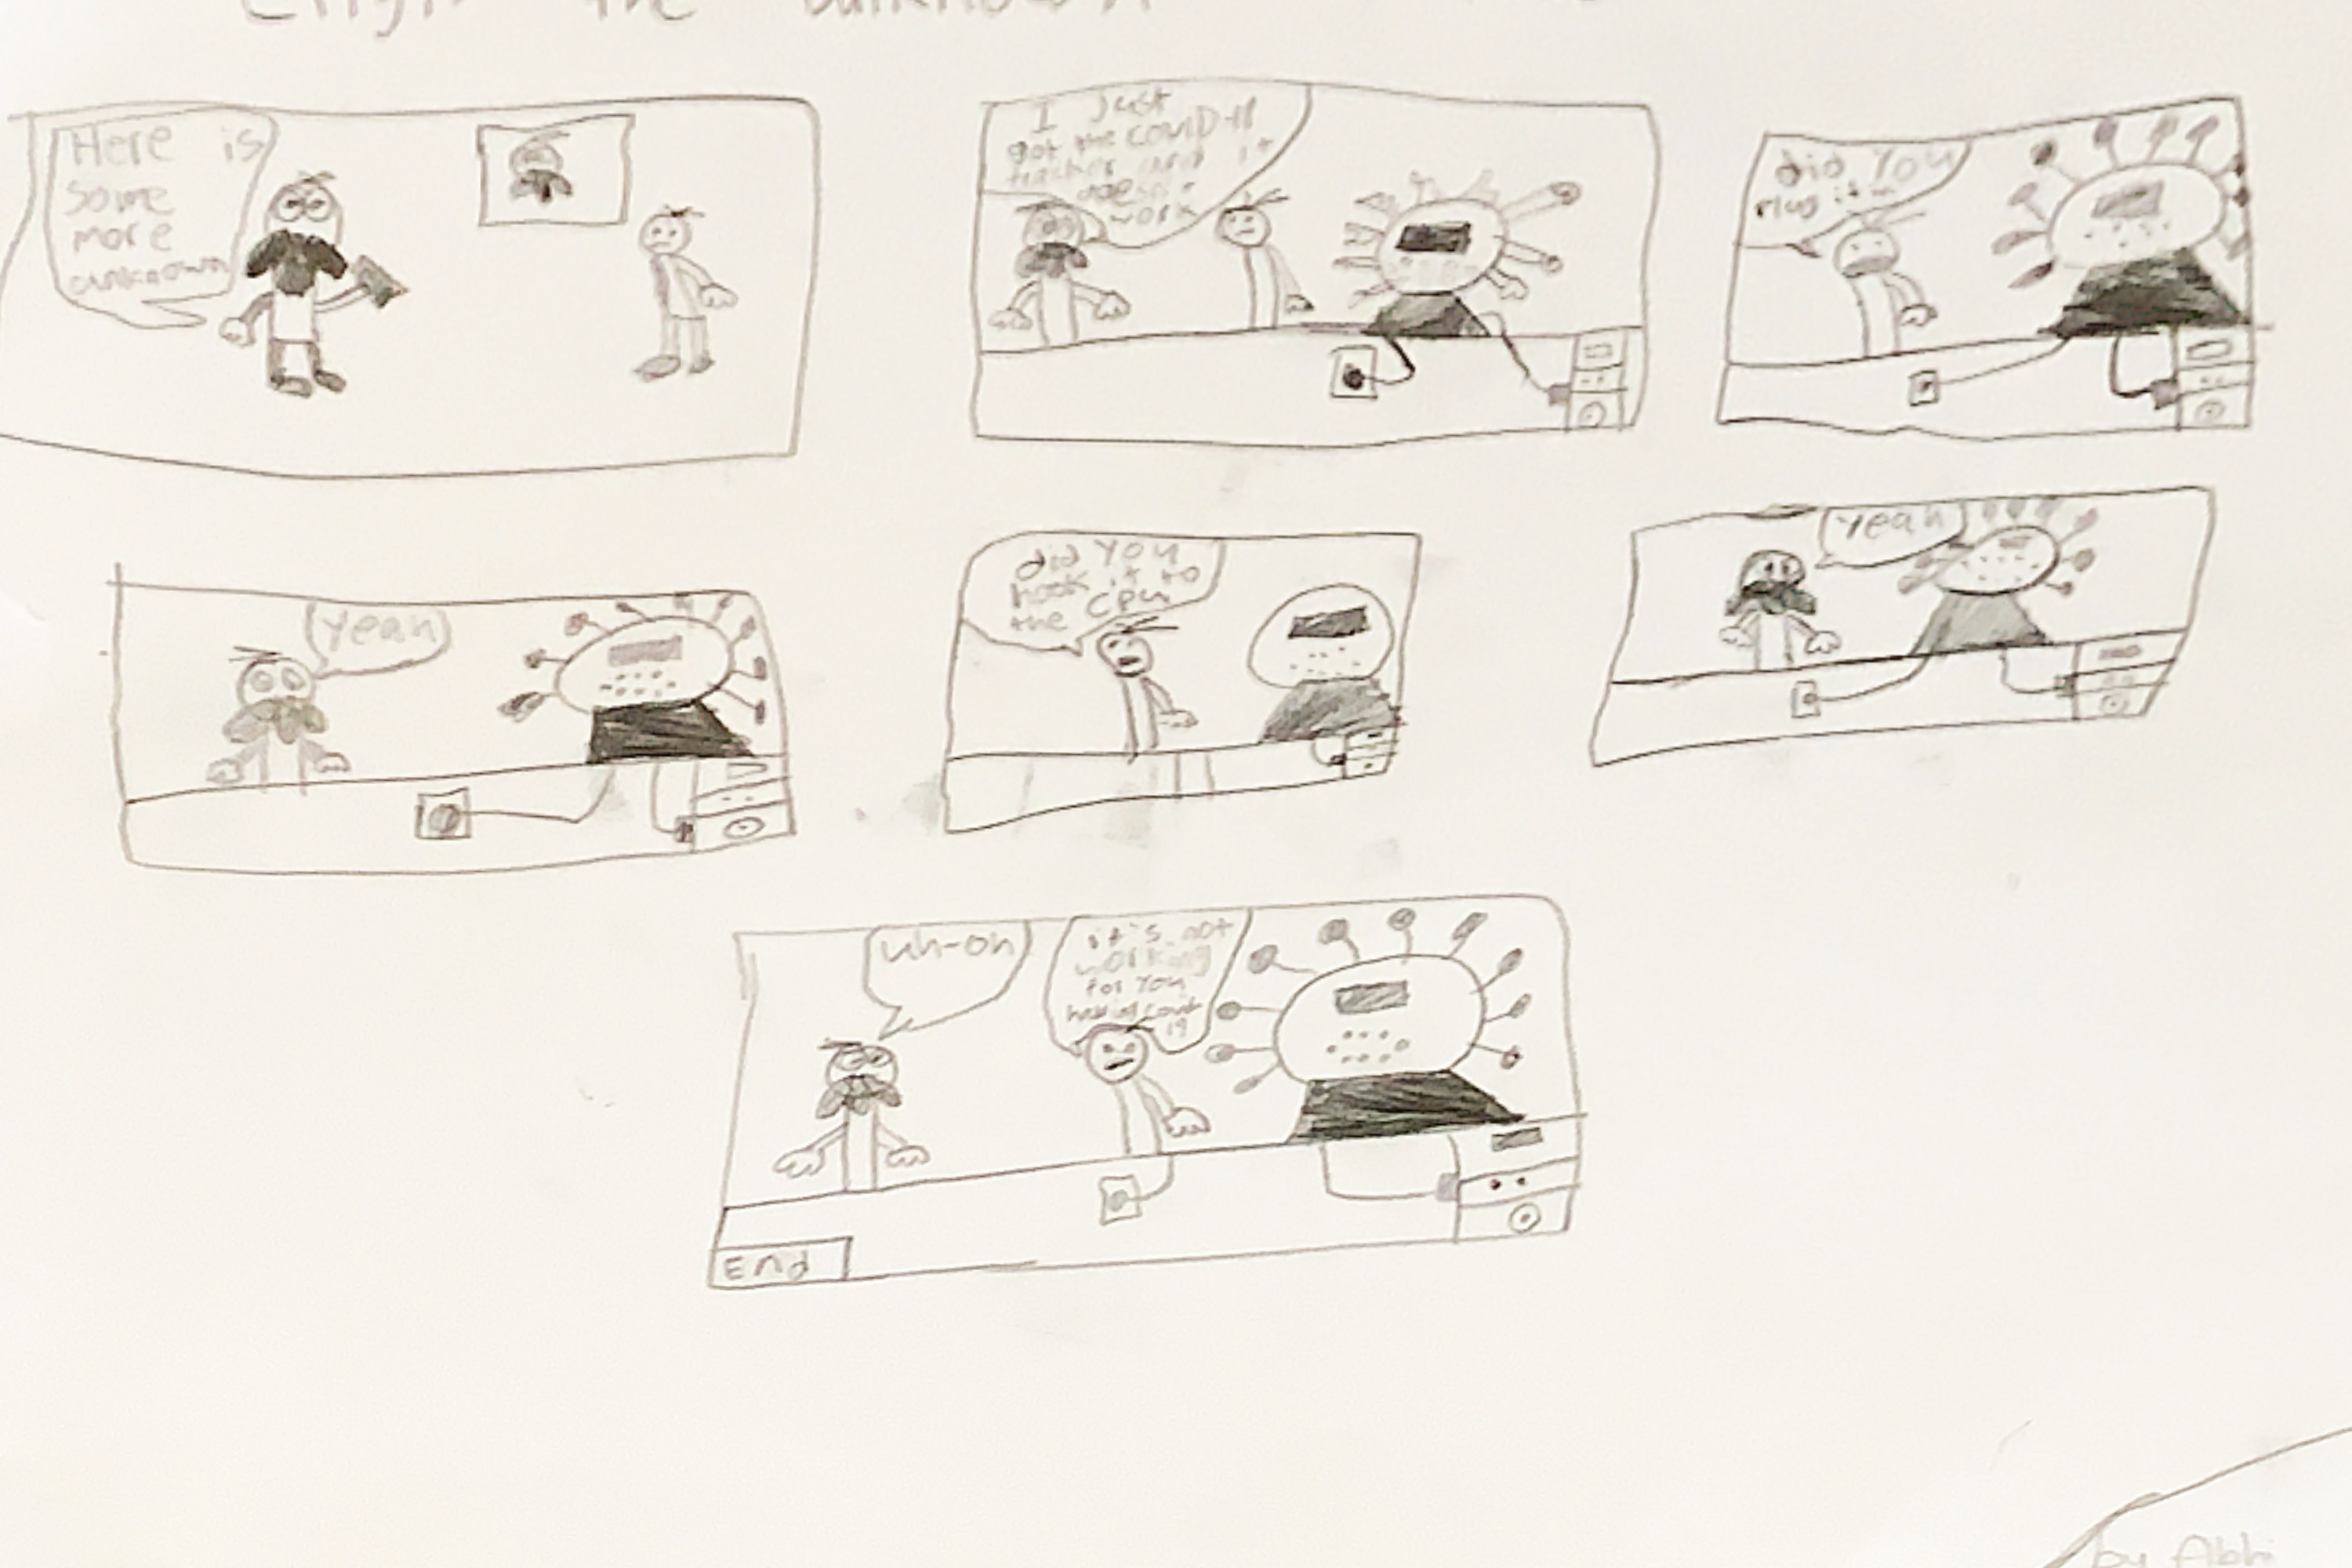 the unknown
Here is
some
more
unknown
I Just
got the COVID-19
tracker and it
doesn't
work
did You
Plug it in
yeah
did You
hook it to
the CPU
Yeah
uh-oh
it's not
working
for You
having Covid
19
End
by Abhi